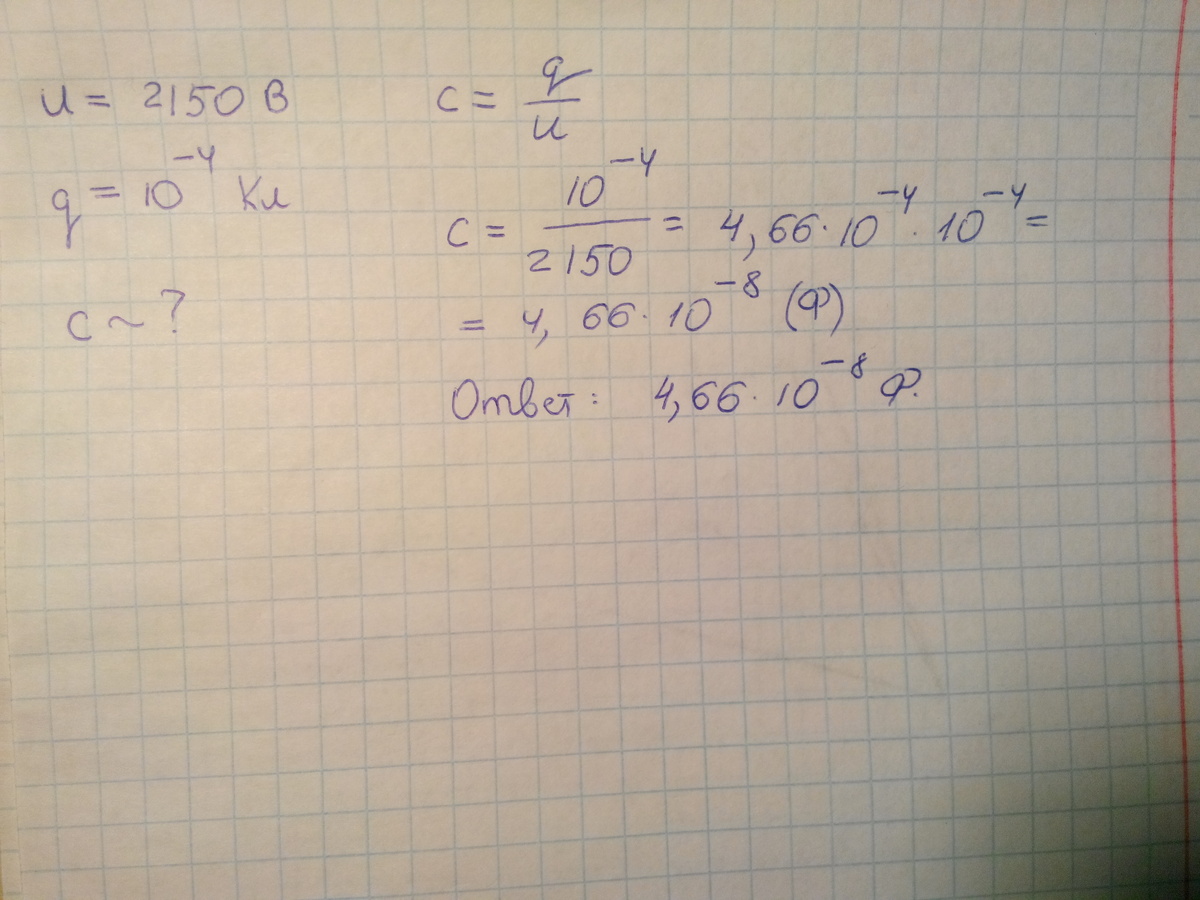 u = 2150 В
q = 10⁻⁴ Кл
c ~ ?
c = q/u
c = 10⁻⁴/2150 = 4,66 · 10⁻⁴ · 10⁻⁴ =
= 4, 66 · 10⁻⁸ (Ф)
Ответ: 4,66 · 10⁻⁸ Ф.